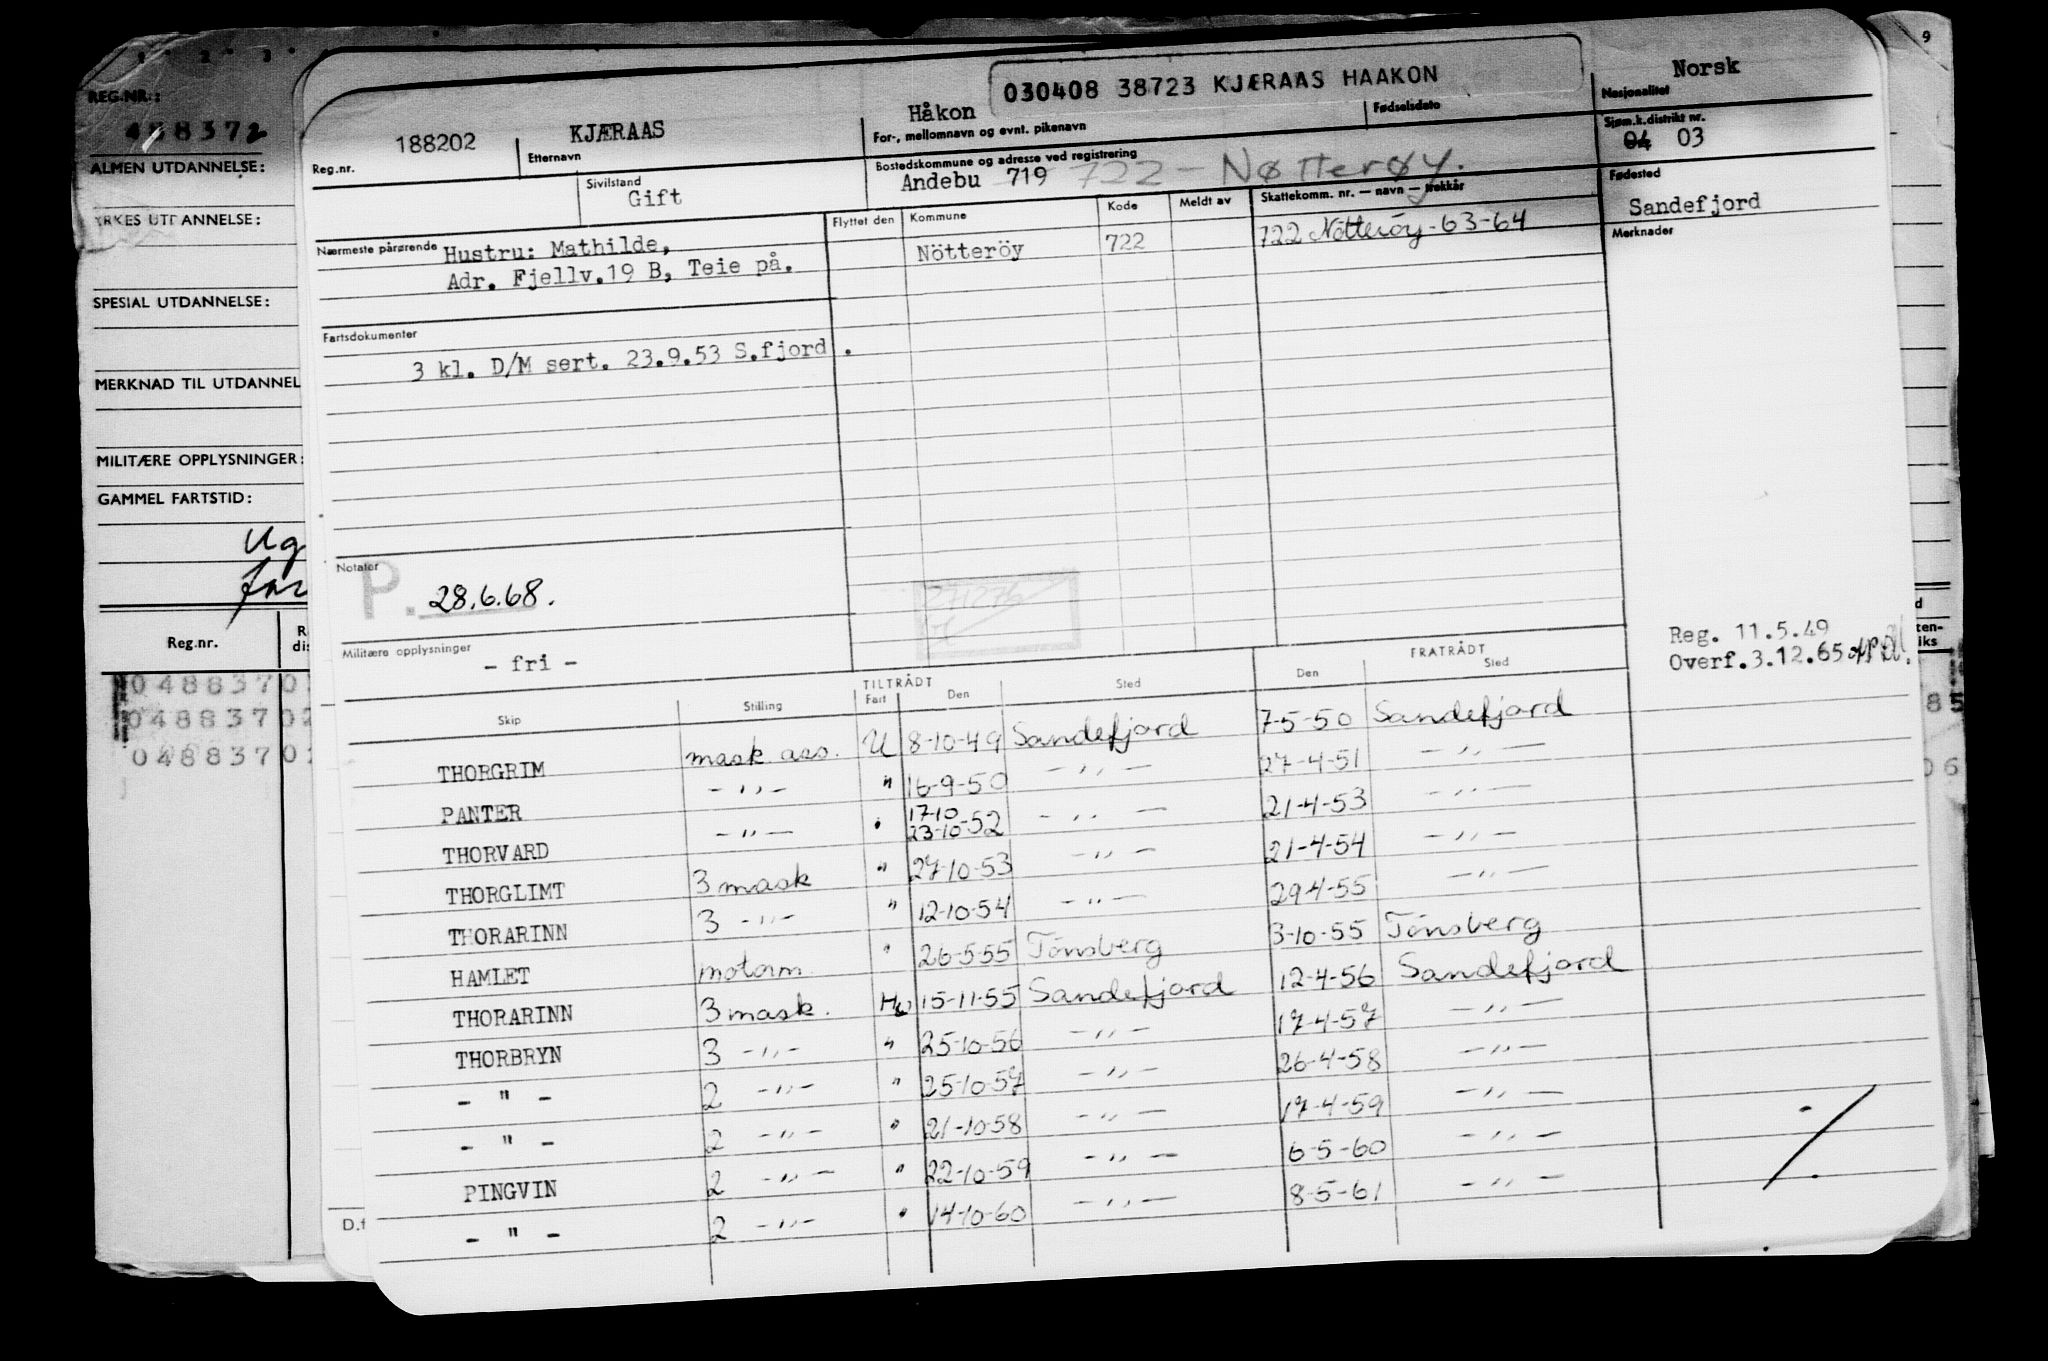 1 2 3
9
REG.NR.:
488372
ALMEN UTDANNELSE:
YRKES UTDANNELSE:
SPESIAL UTDANNELSE:
MERKNAD TIL UTDANNEL
MILITÆRE OPPLYSNINGER:
GAMMEL FARTSTID:
Reg.nr.
0488370
04883702
0488370
D.f
030408 38723 KJÆRAAS HAAKON
Norsk
Nasjonalitet
Reg.nr. 188202 Etternavn KJÆRAAS Håkon
For-, mellomnavn og evnt. pikenavn Fødselsdato
Sjøm.k.distrikt nr.
04 03
Sivilstand
Gift
Bostedskommune og adresse ved registrering
Andebu 719 722 - Nøtterøy.
Fødested
Sandefjord
Nærmeste pårørende Hustru: Mathilde,
Adr. Fjellv.19 B, Teie på.
Flyttet den Kommune Kode Meldt av Skattekomm. nr. — navn — trekkår
Nötteröy 722 722 Nötteröy-63-64
Merknader
Fartsdokumenter
3 kl. D/M sert. 23.9.53 S.fjord.
Notater
P. 28.6.68.
271276
Militære opplysninger
- fri -
Reg. 11.5.49
Overf.3.12.65
TILTRÅDT FRATRÅDT
Skip Stilling Fart Den Sted Den Sted
THORGRIM mask ass. U 8-10-49 Sandefjord 7-5-50 Sandefjord
PANTER -"- " 16-9-50 -"- 27-4-51 -"-
THORVARD -"- " 17-10 23-10-52 -"- 21-4-53 -"-
THORGLIMT 3 mask " 27-10-53 -"- 21-4-54 -"-
THORARINN 3 -"- " 12-10-54 -"- 29-4-55 -"-
HAMLET motorm " 26-5-55 Tönsberg 3-10-55 Tönsberg
THORARINN 3 mask. Hv 15-11-55 Sandefjord 12-4-56 Sandefjord
THORBRYN 3 -"- " 25-10-56 -"- 17-4-57 -"-
- " - 2 -"- " 25-10-57 -"- 26-4-58 -"-
- " - 2 -"- " 21-10-58 -"- 17-4-59 -"-
PINGVIN 2 -"- " 22-10-59 -"- 6-5-60 -"-
- " - 2 -"- " 14-10-60 -"- 8-5-61 -"-